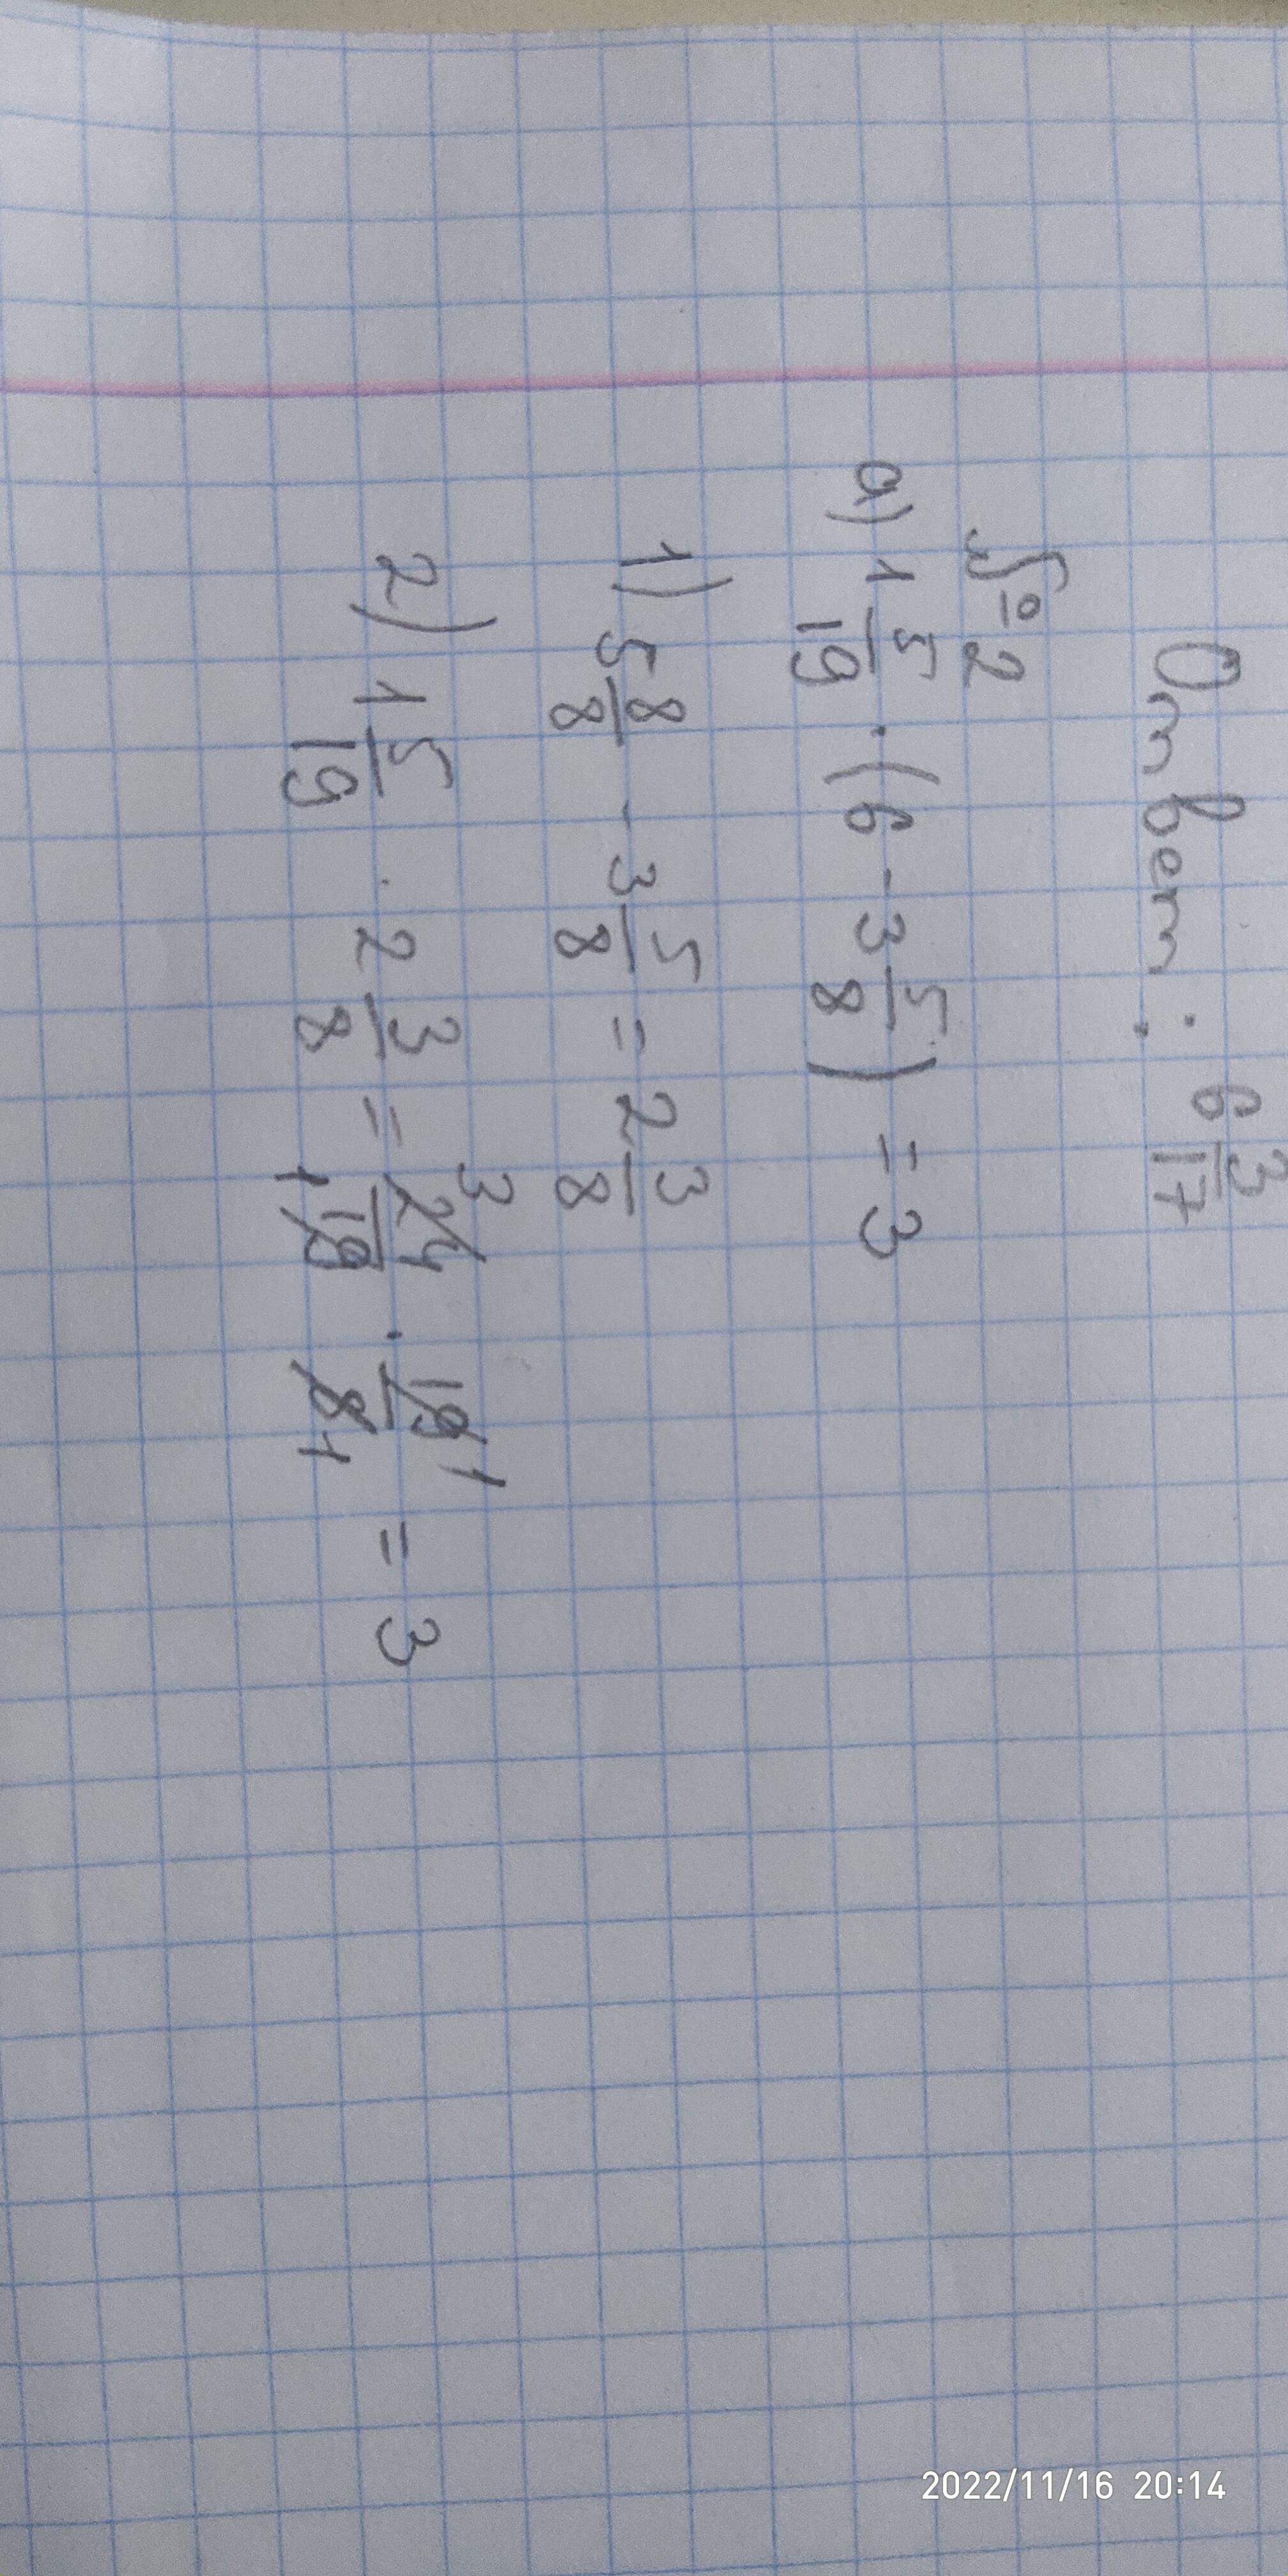 Ответ: 6 3/17
№ 2
а) 1 5/19 · (6 - 3 5/8) = 3
1) 5 8/8 - 3 5/8 = 2 3/8
2) 1 5/19 · 2 3/8 = 24 3/19 1 · 19 1/8 1 = 3
2022/11/16 20:14